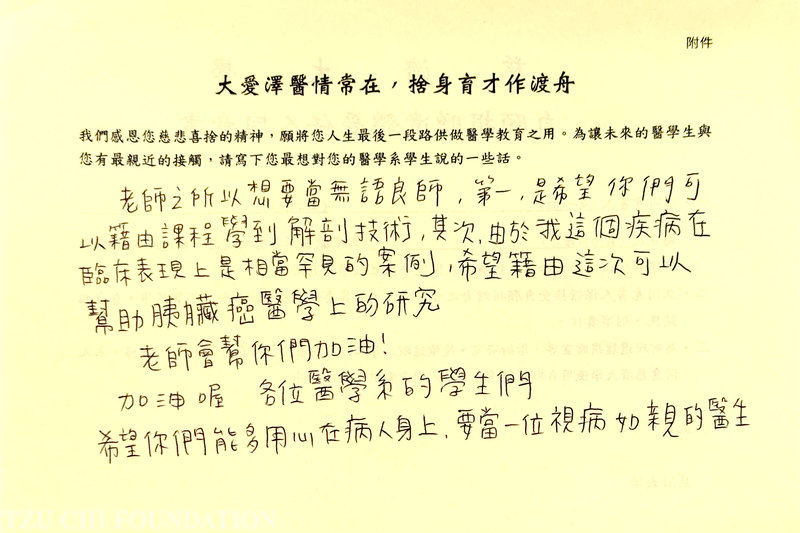 附件
大愛澤醫情常在，捨身育才作渡舟
我們感恩您慈悲喜捨的精神，願將您人生最後一段路供做醫學教育之用。為讓未來的醫學生與
您有最親近的接觸，請寫下您最想對您的醫學系學生說的一些話。
老師之所以想要當無語良師，第一，是希望你們可
以籍由課程學到解剖技術，其次，由於我這個疾病在
臨床表現上是相當罕見的案例，希望籍由這次可以
幫助胰臟癌醫學上的研究
老師會幫你們加油！
加油喔 各位醫學系的學生們
希望你們能多用心在病人身上，要當一位視病如親的醫生
TZU CHI FOUNDATION